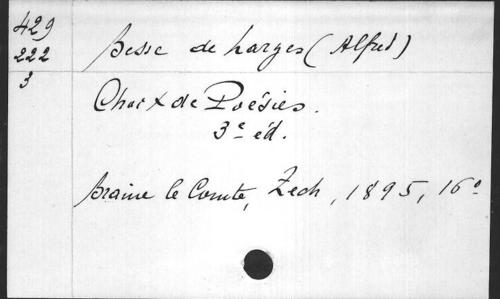 429
222
3
Besse de Larges (Alfred)
Choix de Poésies.
3e éd.
Braine le Comte, Zech, 1895, 16o